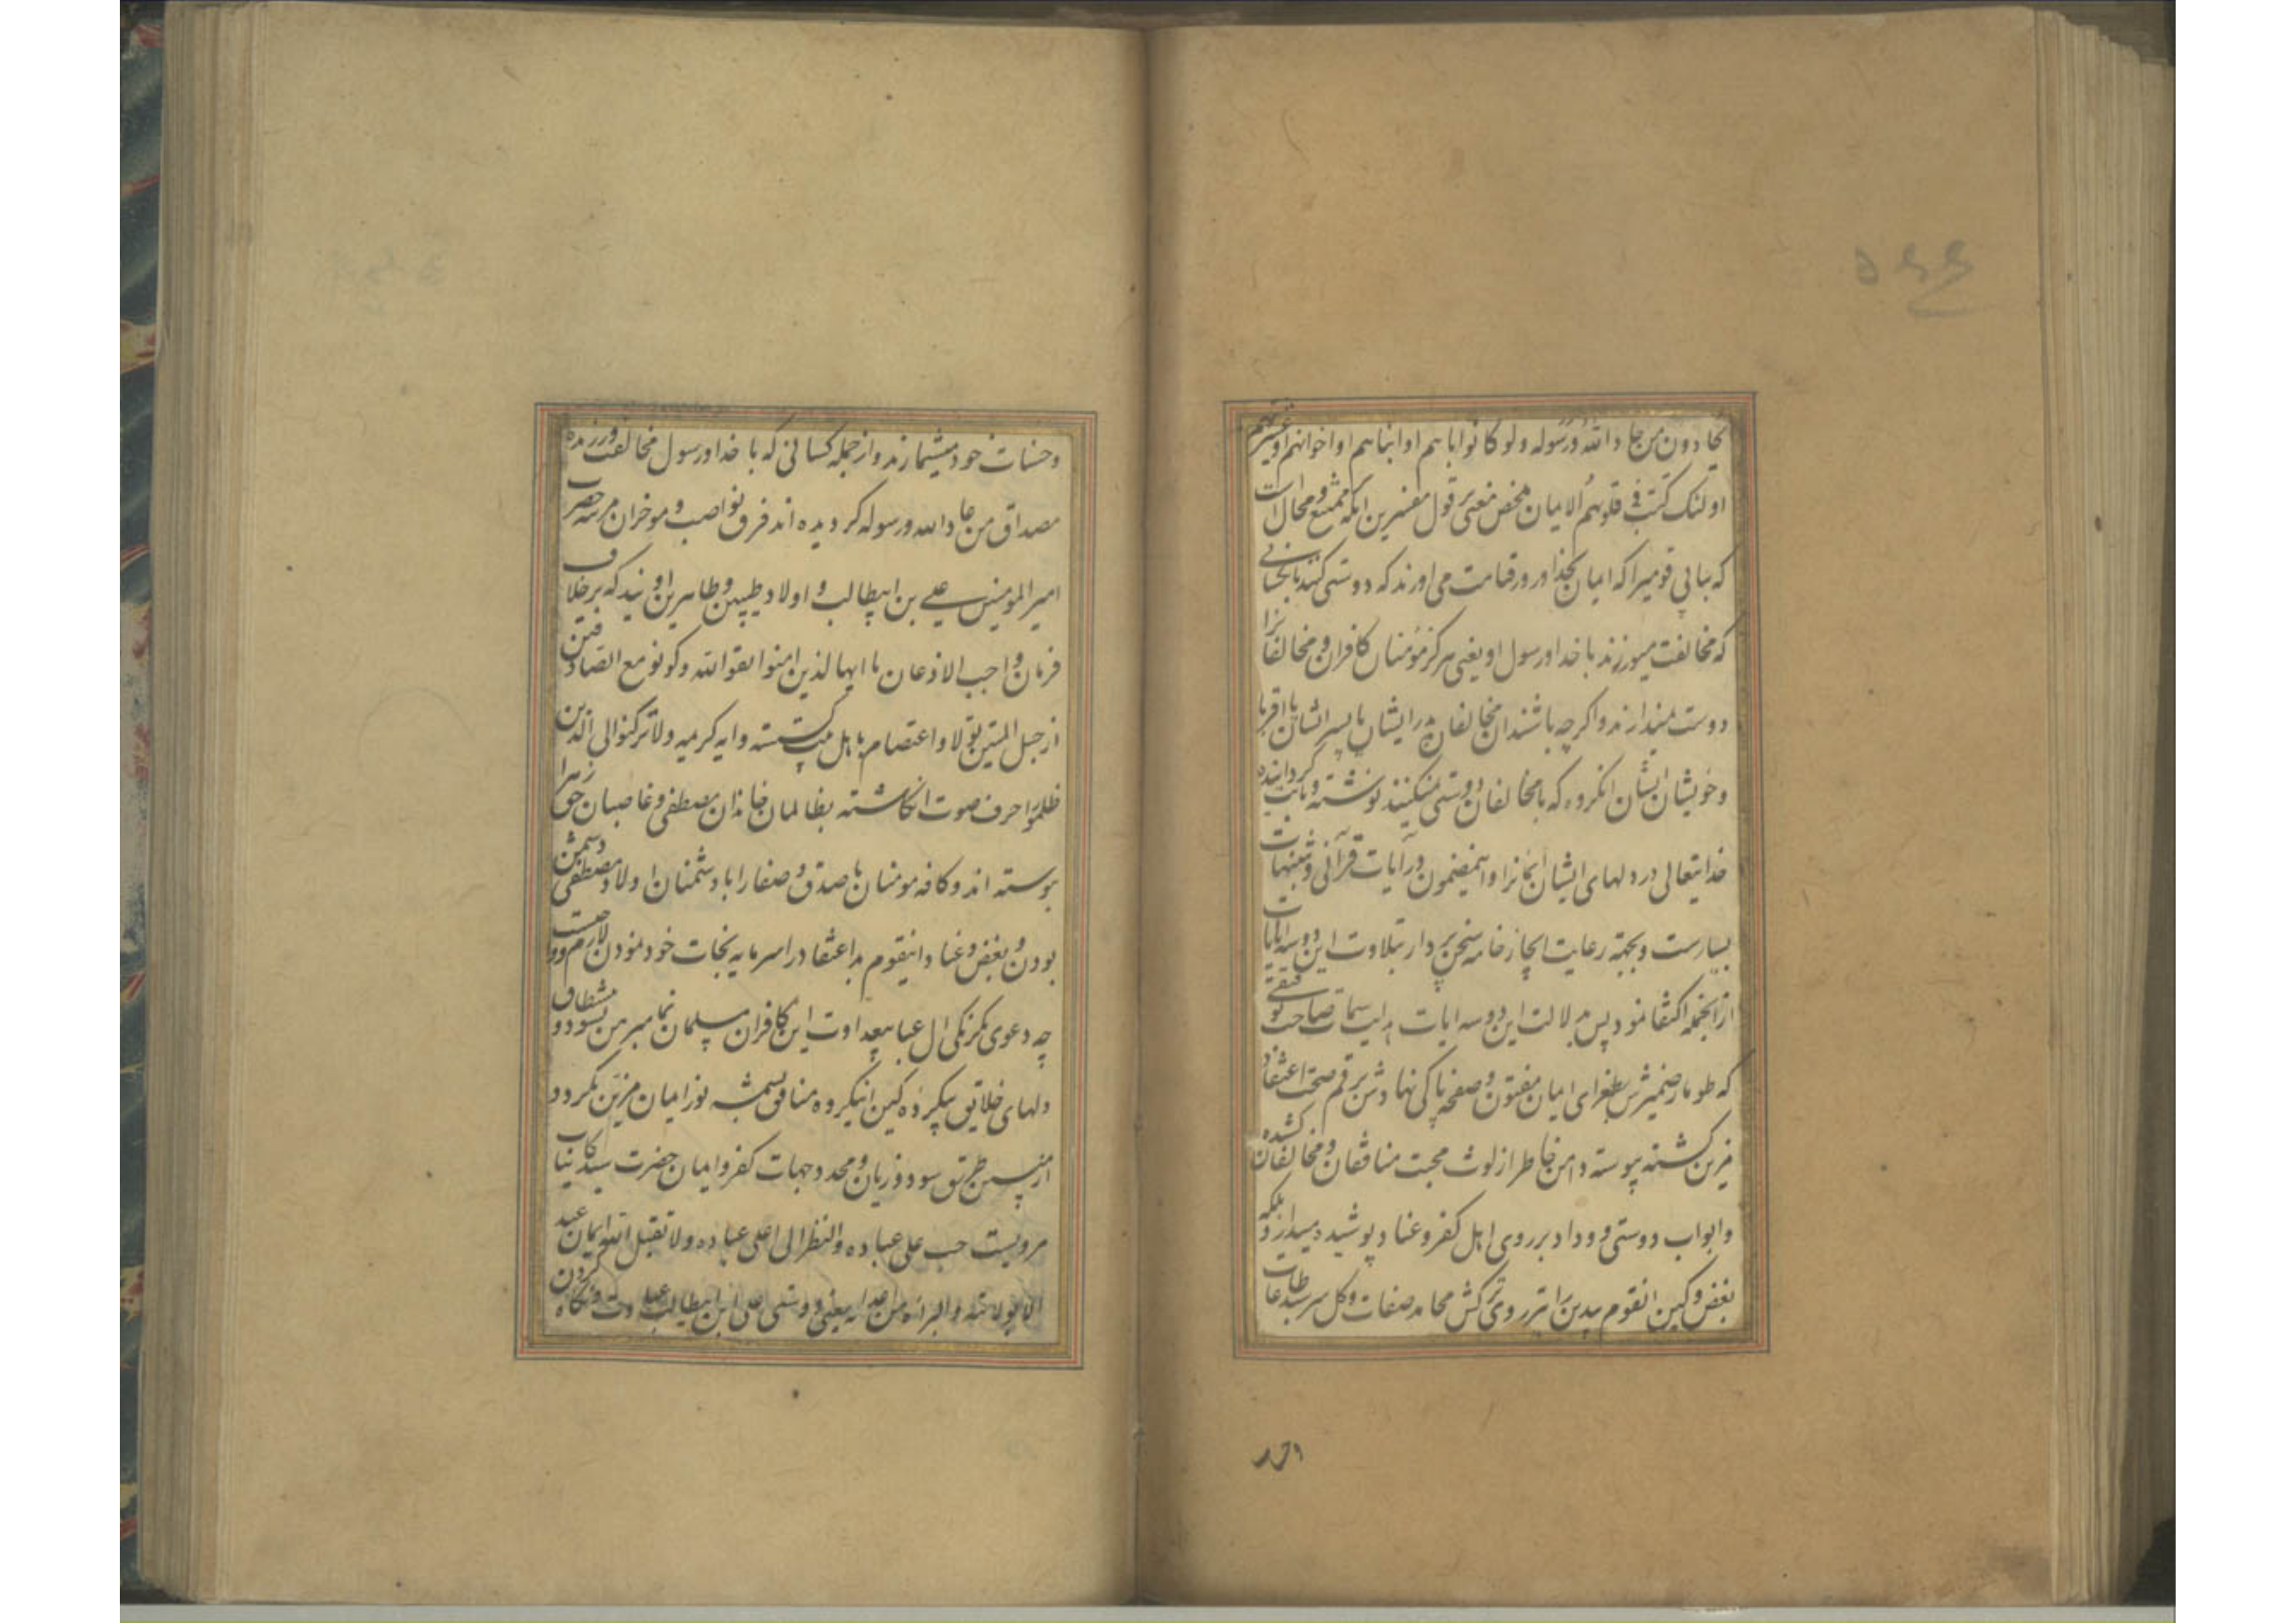 ۵۶۶
یحادون من حاد الله ورسوله ولو کانوا اباهم او ابناهم او اخوانهم او عشیرتهم
اولئک کتب فی قلوبهم الایمان محض معنی بر قول مفسرین انکه ممتنع و محال است
که بیابی قومیرا که ایمان بخدا و روز قیامت می اورند که دوستی کنند با کسانی
که مخالفت میورزند با خدا و رسول او یعنی هرگز مؤمنان کافران و مخالفانرا
دوست نمیدارند و اگرچه باشند ان مخالفان پدر ایشان یا پسر ایشان یا اقربا
و خویشان ایشان انکروه که با مخالفان دوستی نمیکنند نوشته و ثابت گردانیده
خدایتعالی در دلهای ایشان ایمانرا و اینمضمون در آیات قرآنی
بسیارست و بجهة رعایت ایجاز خامه سخن پرداز بتلاوت این دو سه ایات
از انجمله اکتفا نمود پس بدلالت این دو سه ایات هدایت سمات صاحب توفیقی
که طومار ضمیرش بطغرای ایمان مفتون و صفحه پاکی نهادش برقم صحت اعتقاد
مزین کشته پیوسته دامن خاطر از لوث محبت منافقان و مخالفان کشیده
و ابواب دوستی و وداد بر روی اهل کفر و عناد پوشیده میدارد بلکه
بغض و کین انقوم بیدین را
وحسنات خود میشمارند و از جمله کسانی که با خدا و رسول مخالفت ورزیده
مصداق من حاد الله ورسوله کردیده اند فرق نواصب و موخران مرتبه حضرت
امیر المومنین علی بن ابیطالب و اولاد طیبین و طاهرین اویند که بر خلاف
فرمان واجب الاذعان یا ایها الذین امنوا اتقوا الله وکونو مع الصادقین
از حبل المتین تولا و اعتصام باهل بیت کسسته و ایه کریمه ولا ترکنوا الی الذین
ظلموا حرف صوت انکاشته بظالمان خاندان مصطفی و غاصبان حق زهرا
پیوسته اند و کافه مومنان با صدق و صفا را با دشمنان اولاد مصطفی دشمن
بودن و بغض و عناد اینقوم بد اعتقاد را سرمایه نجات خود نمودن لازم
چه دعوی یکرنکی ال عبا بیعداوت این کافران مسلمان نما مبرهن نشود و
دلهای خلایق بیکروه کین اینکروه منافق بسمت نور ایمان مزین نکردد
از حضرت سید کاینات
مرویست حب علی عباده والنظر الی علی عباده ولا تقبل الله ایمان عبد
الا بولایته والبرائه من اعدائه یعنی دوستی علی ابن ابیطالب عبادتست و نکاه کردن